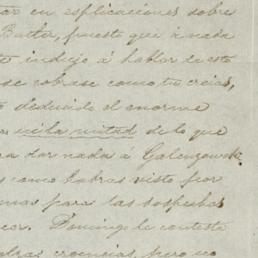 en esplicaciones sobre
Butler, puesto que á nada
indujo á hablar de esto
se cobrase como tu creias,
deducido el enorme
mitad de lo que
dar nada á Galenzowski
como habras visto por
para las
Domingo le conteste
creencias, pero no